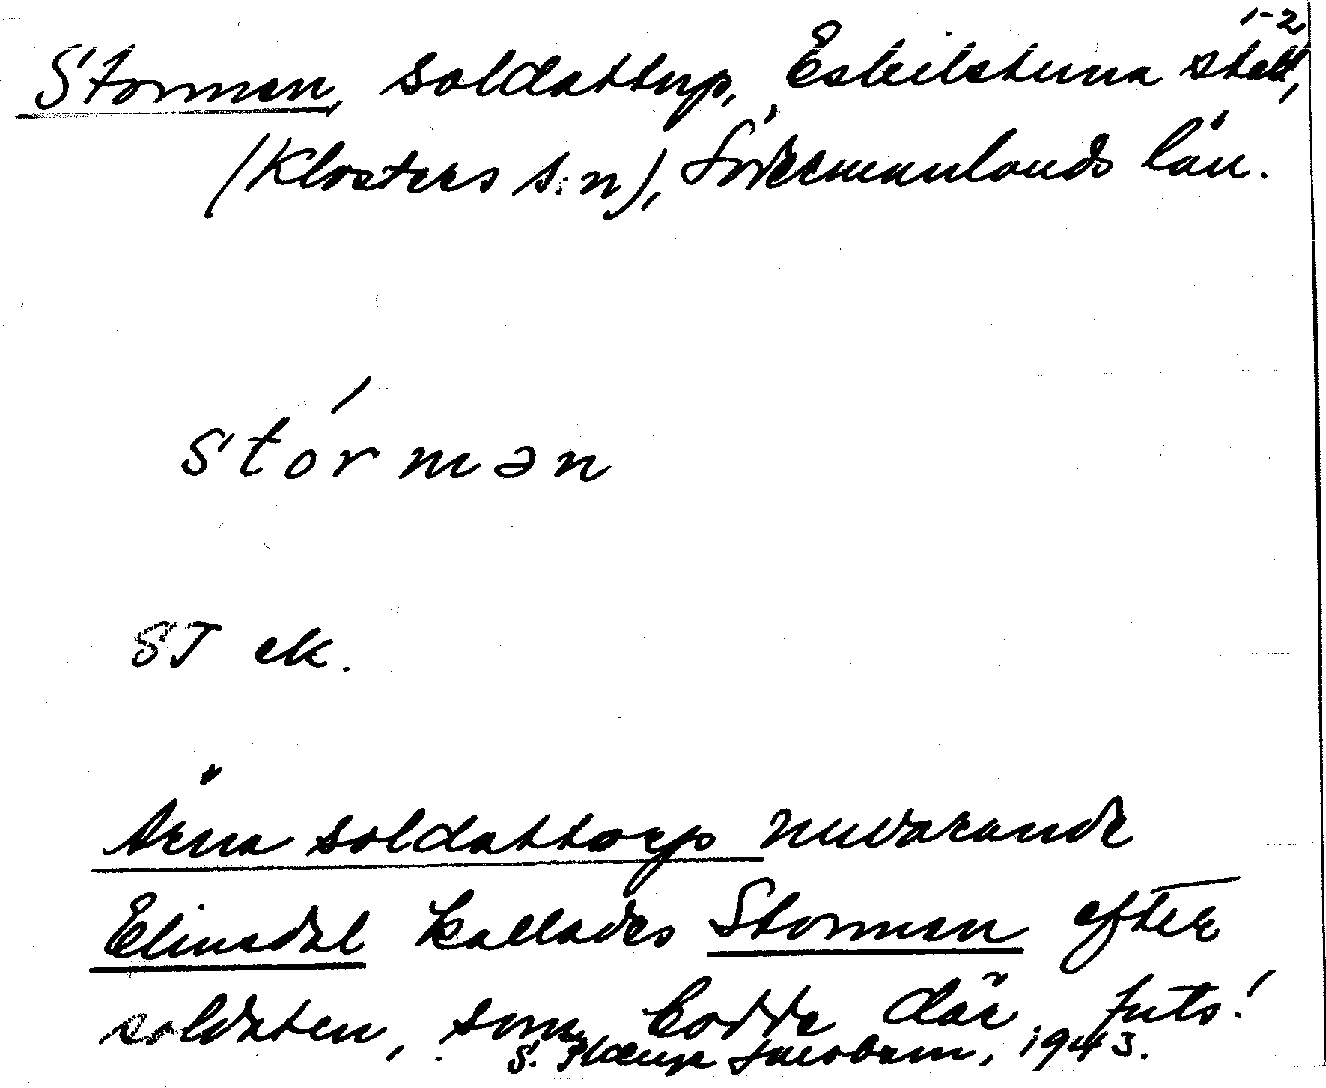 1-2
Stormen, soldattorp, Eskilstuna stad,
(Klosters s:n), Södermanlands län.
stórmən
ST ek.
Ärna soldattorp nuvarande
Elinedal kallades Stormen efter
soldaten, som bodde där, futs!
S. Jacobsson, 1943.